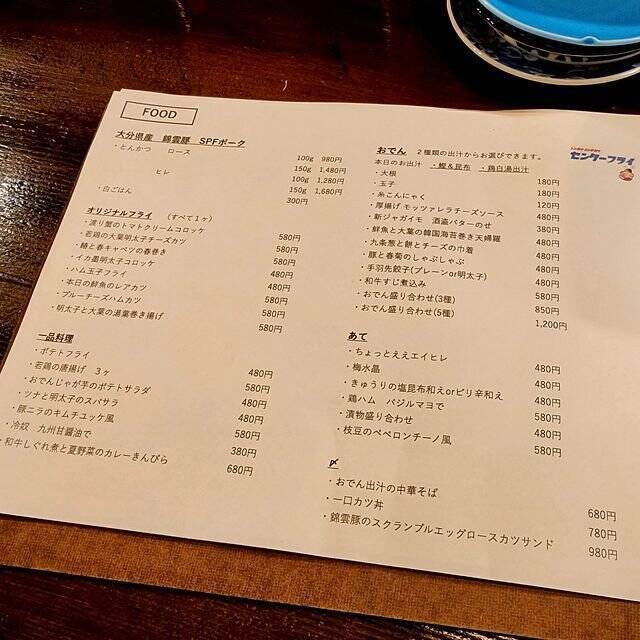 FOOD
大分県産 錦雲豚 SPFポーク
・とんかつ ロース 100g 980円
150g 1,480円
ヒレ 100g 1,280円
150g 1,680円
・白ごはん 300円
オリジナルフライ (すべて1ヶ)
・渡り蟹のトマトクリームコロッケ 580円
・若鶏の大葉明太子チーズカツ 580円
・鯖と春キャベツの春巻き 480円
・イカ墨明太子コロッケ 580円
・ハム玉子フライ 480円
・本日の鮮魚のレアカツ 580円
・ブルーチーズハムカツ 580円
・明太子と大葉の湯葉巻き揚げ 580円
一品料理
・ポテトフライ 480円
・若鶏の唐揚げ 3ヶ 580円
・おでんじゃが芋のポテトサラダ 480円
・ツナと明太子のスパサラ 480円
・豚ニラのキムチユッケ風 580円
・冷奴 九州甘醤油で 380円
・和牛しぐれ煮と夏野菜のカレーきんぴら 680円
おでん 2種類の出汁からお選びできます。
本日のお出汁 ・鰹&昆布 ・鶏白湯出汁
・大根 180円
・玉子 180円
・糸こんにゃく 120円
・厚揚げ モッツァレラチーズソース 480円
・新ジャガイモ 酒盗バターのせ 380円
・鮮魚と大葉の韓国海苔巻き天婦羅 480円
・九条葱と餅とチーズの巾着 480円
・豚と春菊のしゃぶしゃぶ 480円
・手羽先餃子(プレーンor明太子) 480円
・和牛すじ煮込み 580円
・おでん盛り合わせ(3種) 850円
・おでん盛り合わせ(5種) 1,200円
あて
・ちょっとええエイヒレ 480円
・梅水晶 480円
・きゅうりの塩昆布和えorピリ辛和え 480円
・鶏ハム バジルマヨで 580円
・漬物盛り合わせ 480円
・枝豆のペペロンチーノ風 580円
〆
・おでん出汁の中華そば 680円
・一口カツ丼 780円
・錦雲豚のスクランブルエッグロースカツサンド 980円
センターフライ